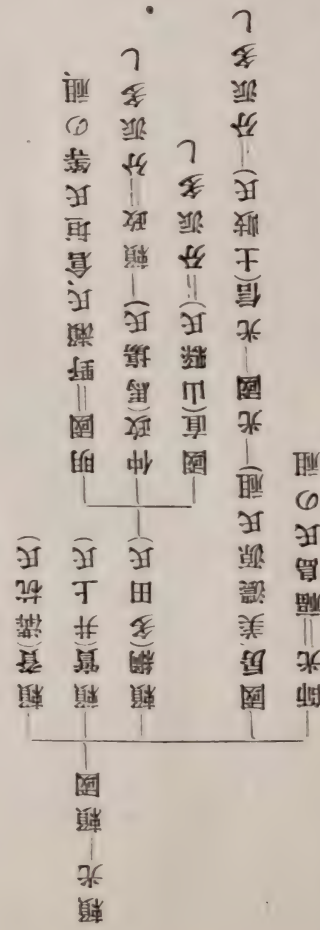 頼光―頼國
頼資(溝杭氏)
頼實(井上氏)
頼綱(多田氏)
明國＝野瀬氏、倉垣氏等の祖、
仲政(馬場氏)―頼政＝分派多し
國直(山縣氏)＝分派多し
國房(美濃源氏祖)―光國―光信(土岐氏)―分派多し
師光＝福島氏の祖